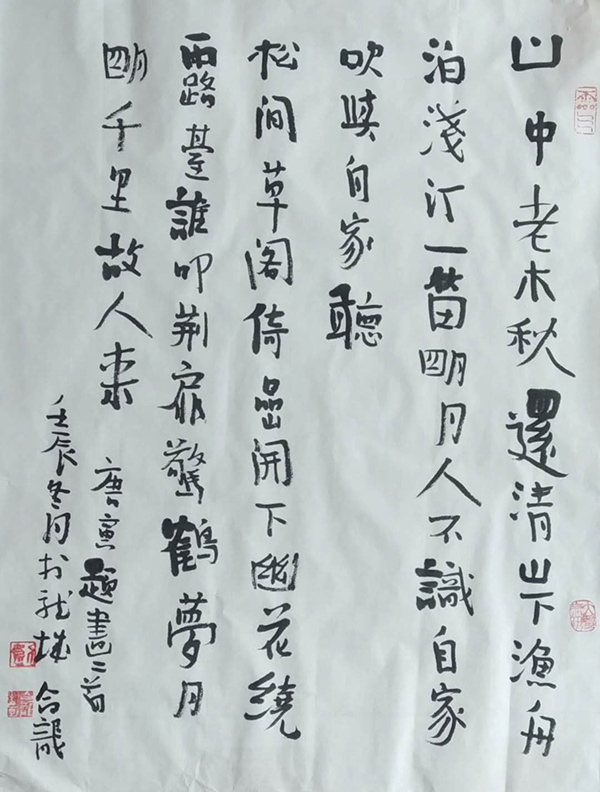 山中老木秋還清山下漁舟
泊淺汀一笛明月人不識自家
吹與自家聽
松間草閣倚嵒開下幽花繞
露臺誰叩荊扉驚鶴夢月
明千里故人來
唐寅題畫二首
壬辰冬月於龍城